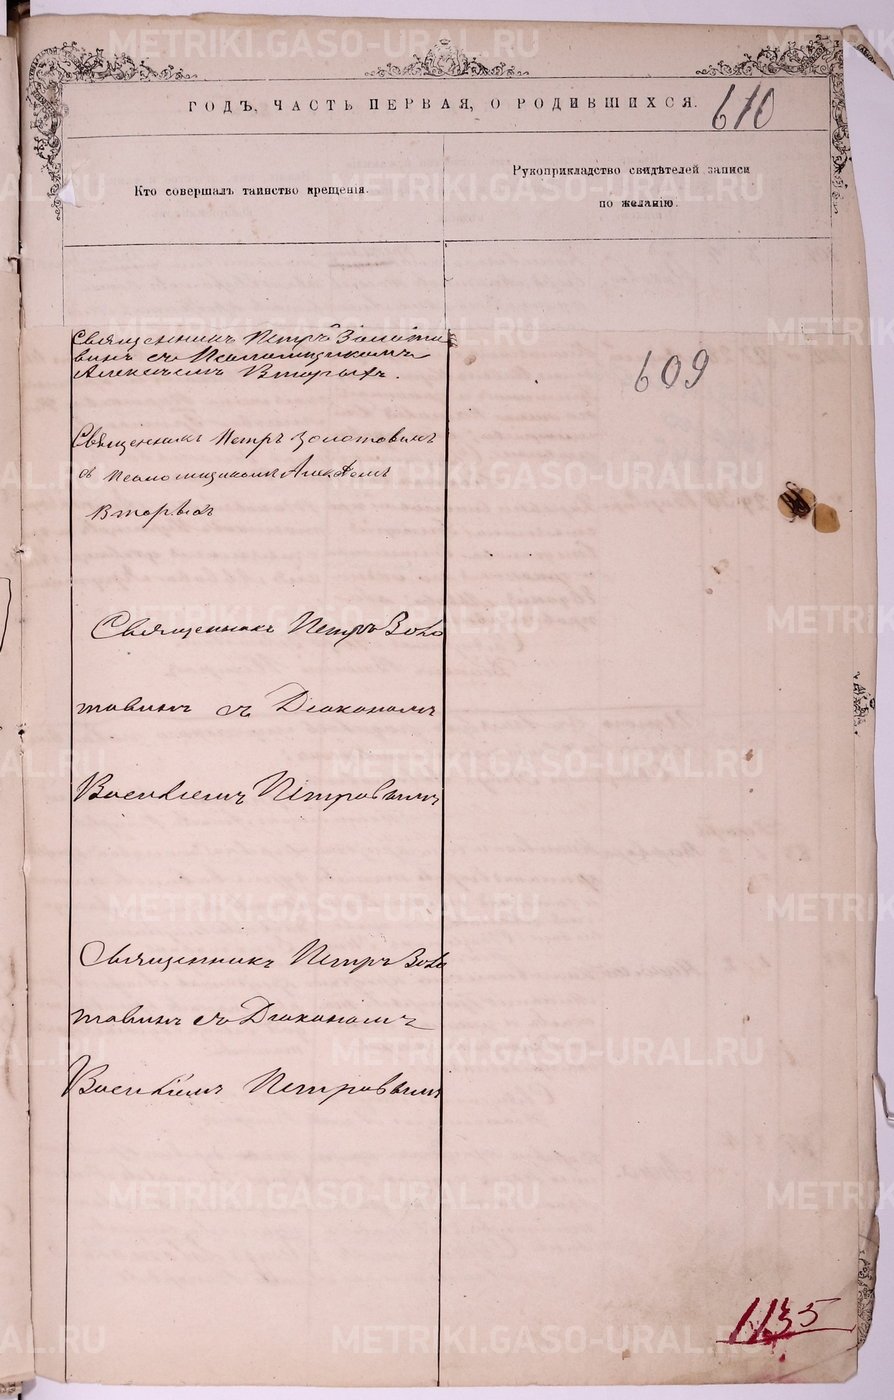 ГОДЪ, ЧАСТЬ ПЕРВАЯ, О РОДИВШИХСЯ.
610
Кто совершалъ таинство крещенія.
Рукоприкладство свидѣтелей записи
по желанію.
Священникъ Петръ Золота
винъ съ Псаломщикомъ
Алексѣемъ Вторыхъ.
609
Священникъ Петръ Золотавинъ
съ Псаломщикомъ Алексѣемъ
Вторыхъ
Священникъ Петръ Золо
тавинъ съ Діакономъ
Василіемъ Петровымъ
Священникъ Петръ Золо
тавинъ съ Діакономъ
Василіемъ Петровымъ
1135
METRIKI.GASO-URAL.RU